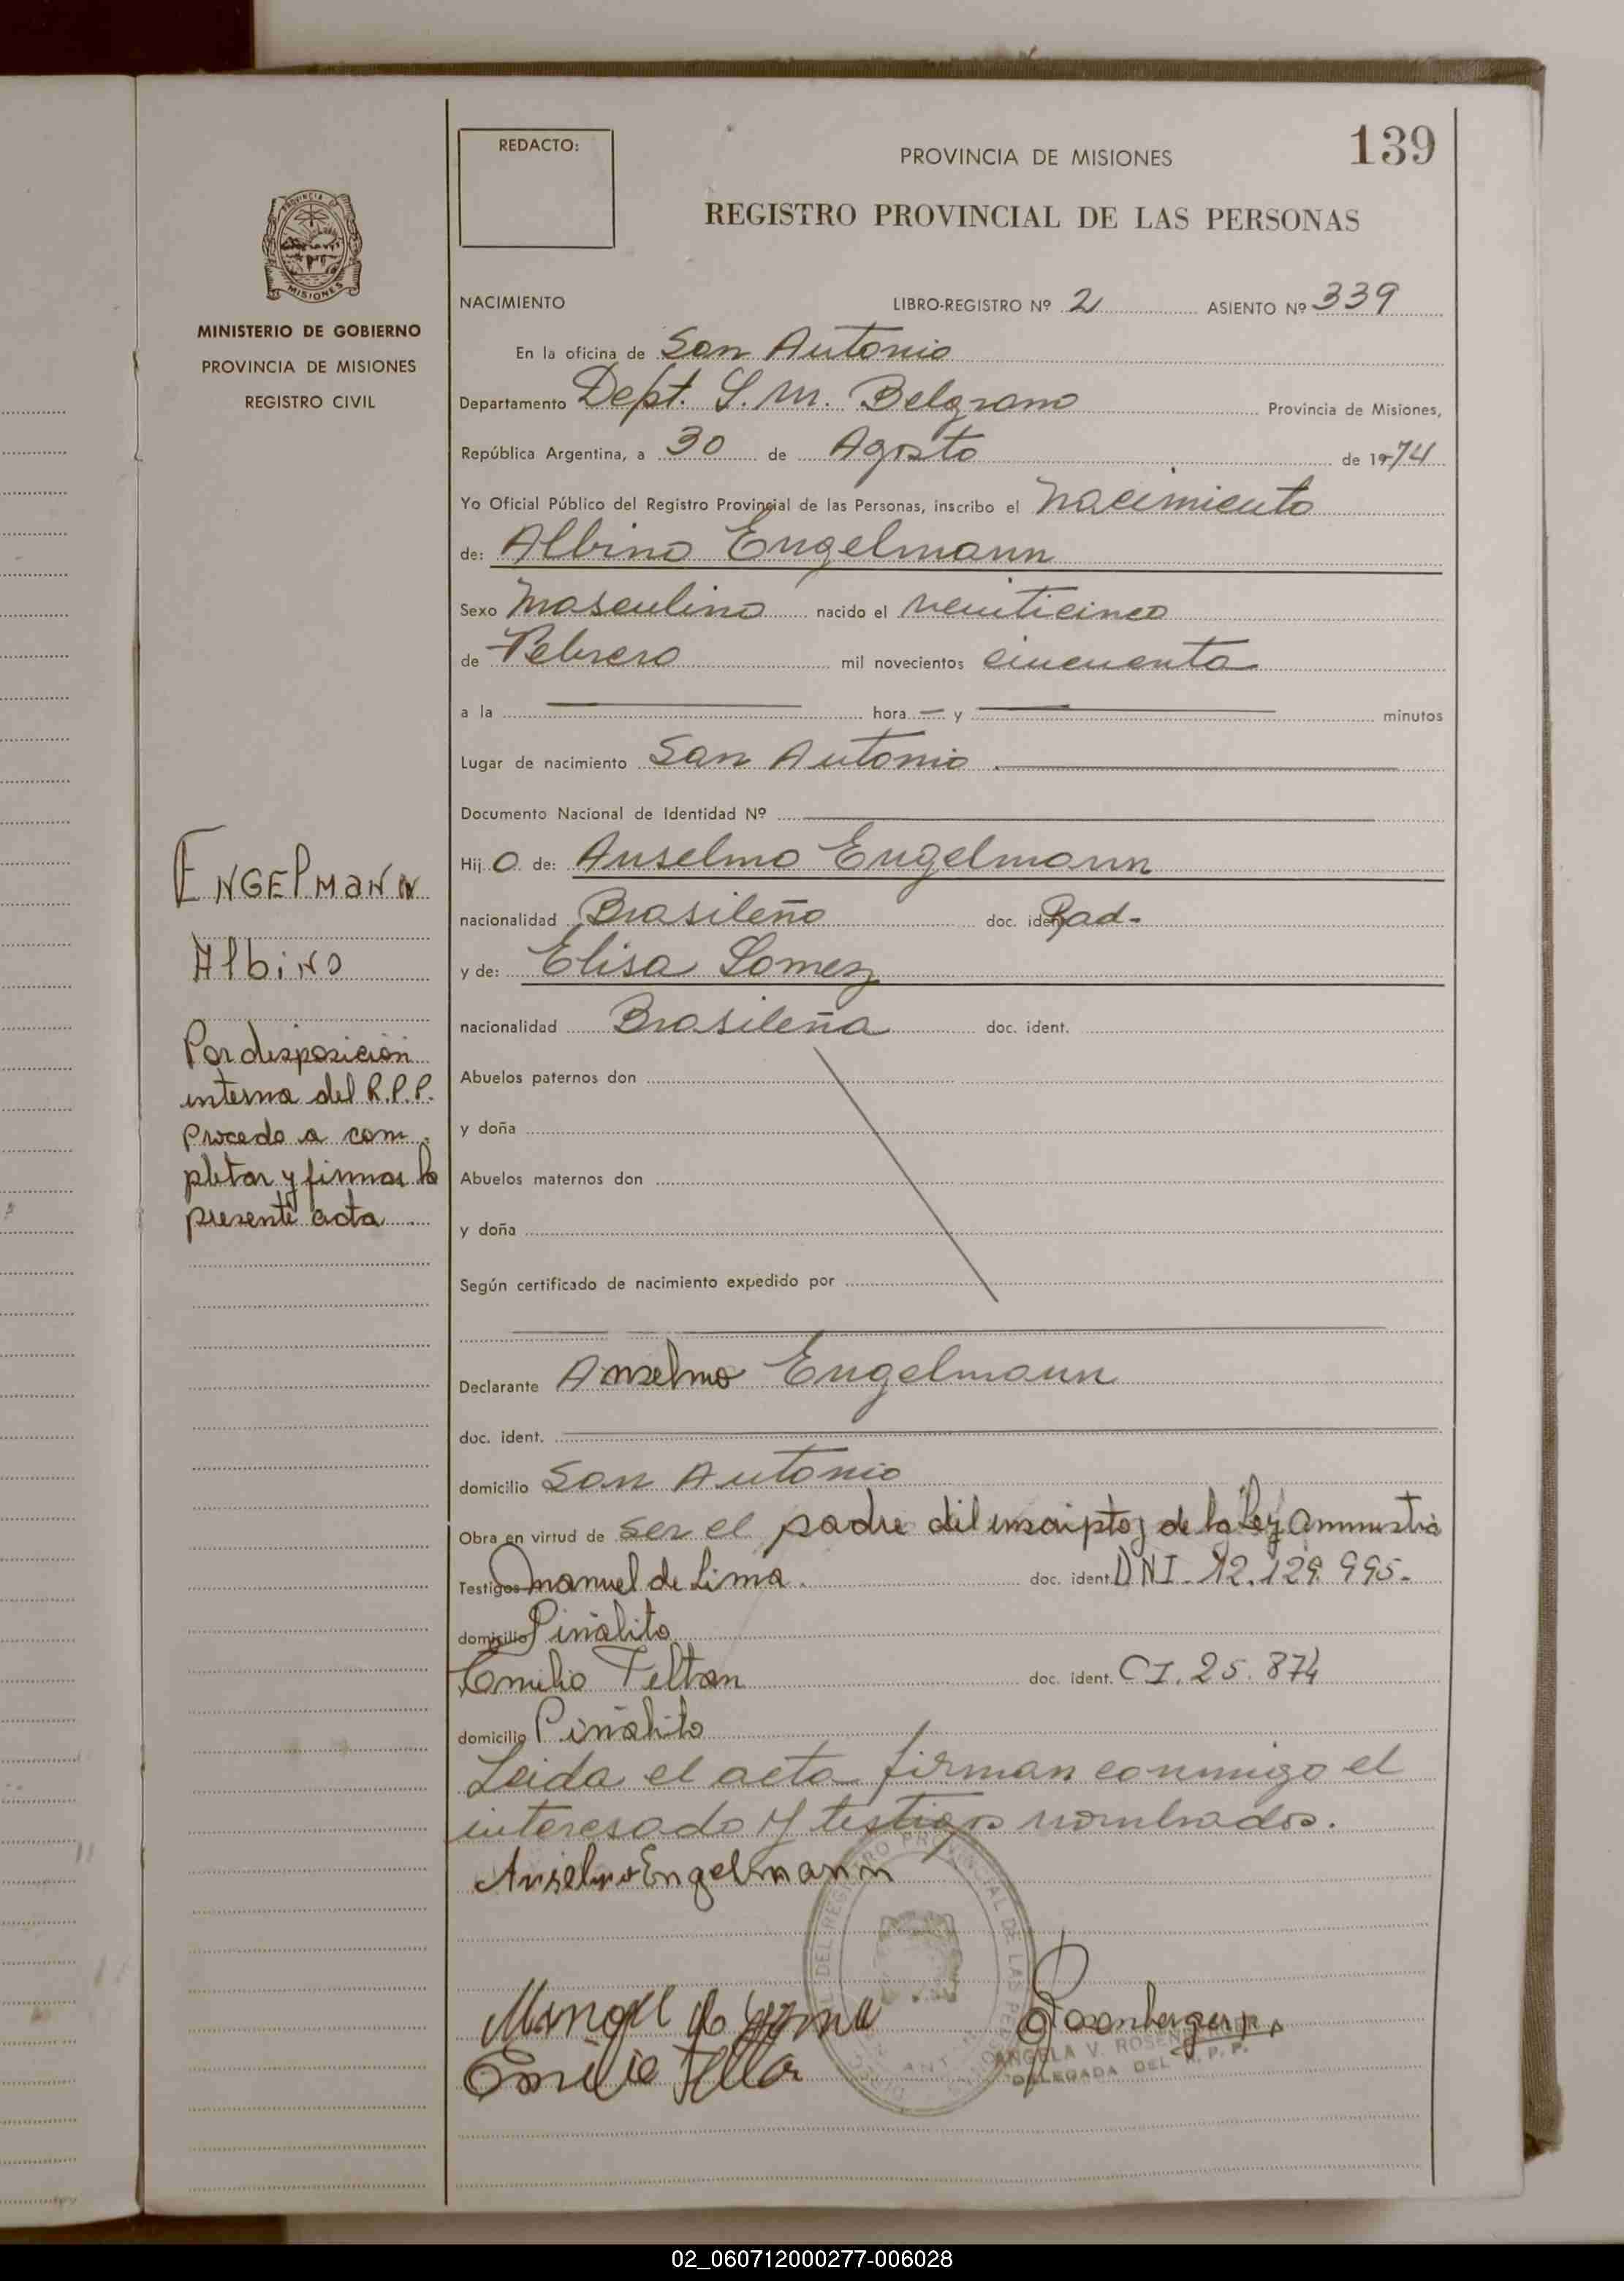 REDACTO:
PROVINCIA DE MISIONES
139
REGISTRO PROVINCIAL DE LAS PERSONAS
MISIONES
MINISTERIO DE GOBIERNO
PROVINCIA DE MISIONES
REGISTRO CIVIL
NACIMIENTO LIBRO-REGISTRO Nº 2 ASIENTO Nº 339
En la oficina de San Antonio
Departamento Dept. G. M. Belgrano Provincia de Misiones,
República Argentina, a 30 de Agosto de 1974
Yo Oficial Público del Registro Provincial de las Personas, inscribo el Nacimiento
de: Albino Engelmann
Sexo Masculino nacido el veinticinco
de Febrero mil novecientos cincuenta
a la hora — y minutos
Lugar de nacimiento San Antonio .
Documento Nacional de Identidad Nº
Hij o de: Anselmo Engelmann
nacionalidad Brasileño doc. ident. Rad-
y de: Elisa Gomez
nacionalidad Brasileña doc. ident.
Abuelos paternos don
y doña
Abuelos maternos don
y doña
Según certificado de nacimiento expedido por
Declarante Anselmo Engelmann
doc. ident.
domicilio San Antonio
Obra en virtud de ser el padre del inscripto y de la Ley Amnistia
Testigos Manuel de Lima. doc. ident. DNI-12.129.995-
domicilio Piñalito
Emilio Feltan doc. ident. CI. 25.874
domicilio Piñalito
Leida el acta firman conmigo el
interesado y testigos nombrados.
Anselmo Engelmann
ANGELA V.
DELEGADA DEL R. P. P.
ENGELMANN
Albino
Por disposición
interna del R.P.P.
Procedo a com-
pletar y firmar la
presente acta
02_060712000277-006028